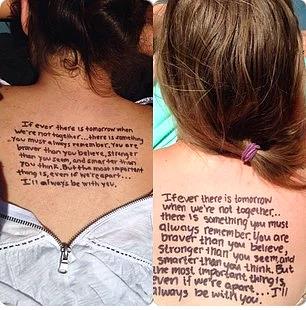 If ever there is tomorrow when
we're not together... there is something
you must always remember. You are
braver than you believe, stronger
than you seem, and smarter than
you think. But the most important
thing is, even if we're apart...
I'll always be with you.
If ever there is tomorrow
when we're not together...
there is something you must
always remember. You are
braver than you believe,
stronger than you seem, and
smarter than you think. But
the most important thing is,
even if we're apart... I'll
always be with you.